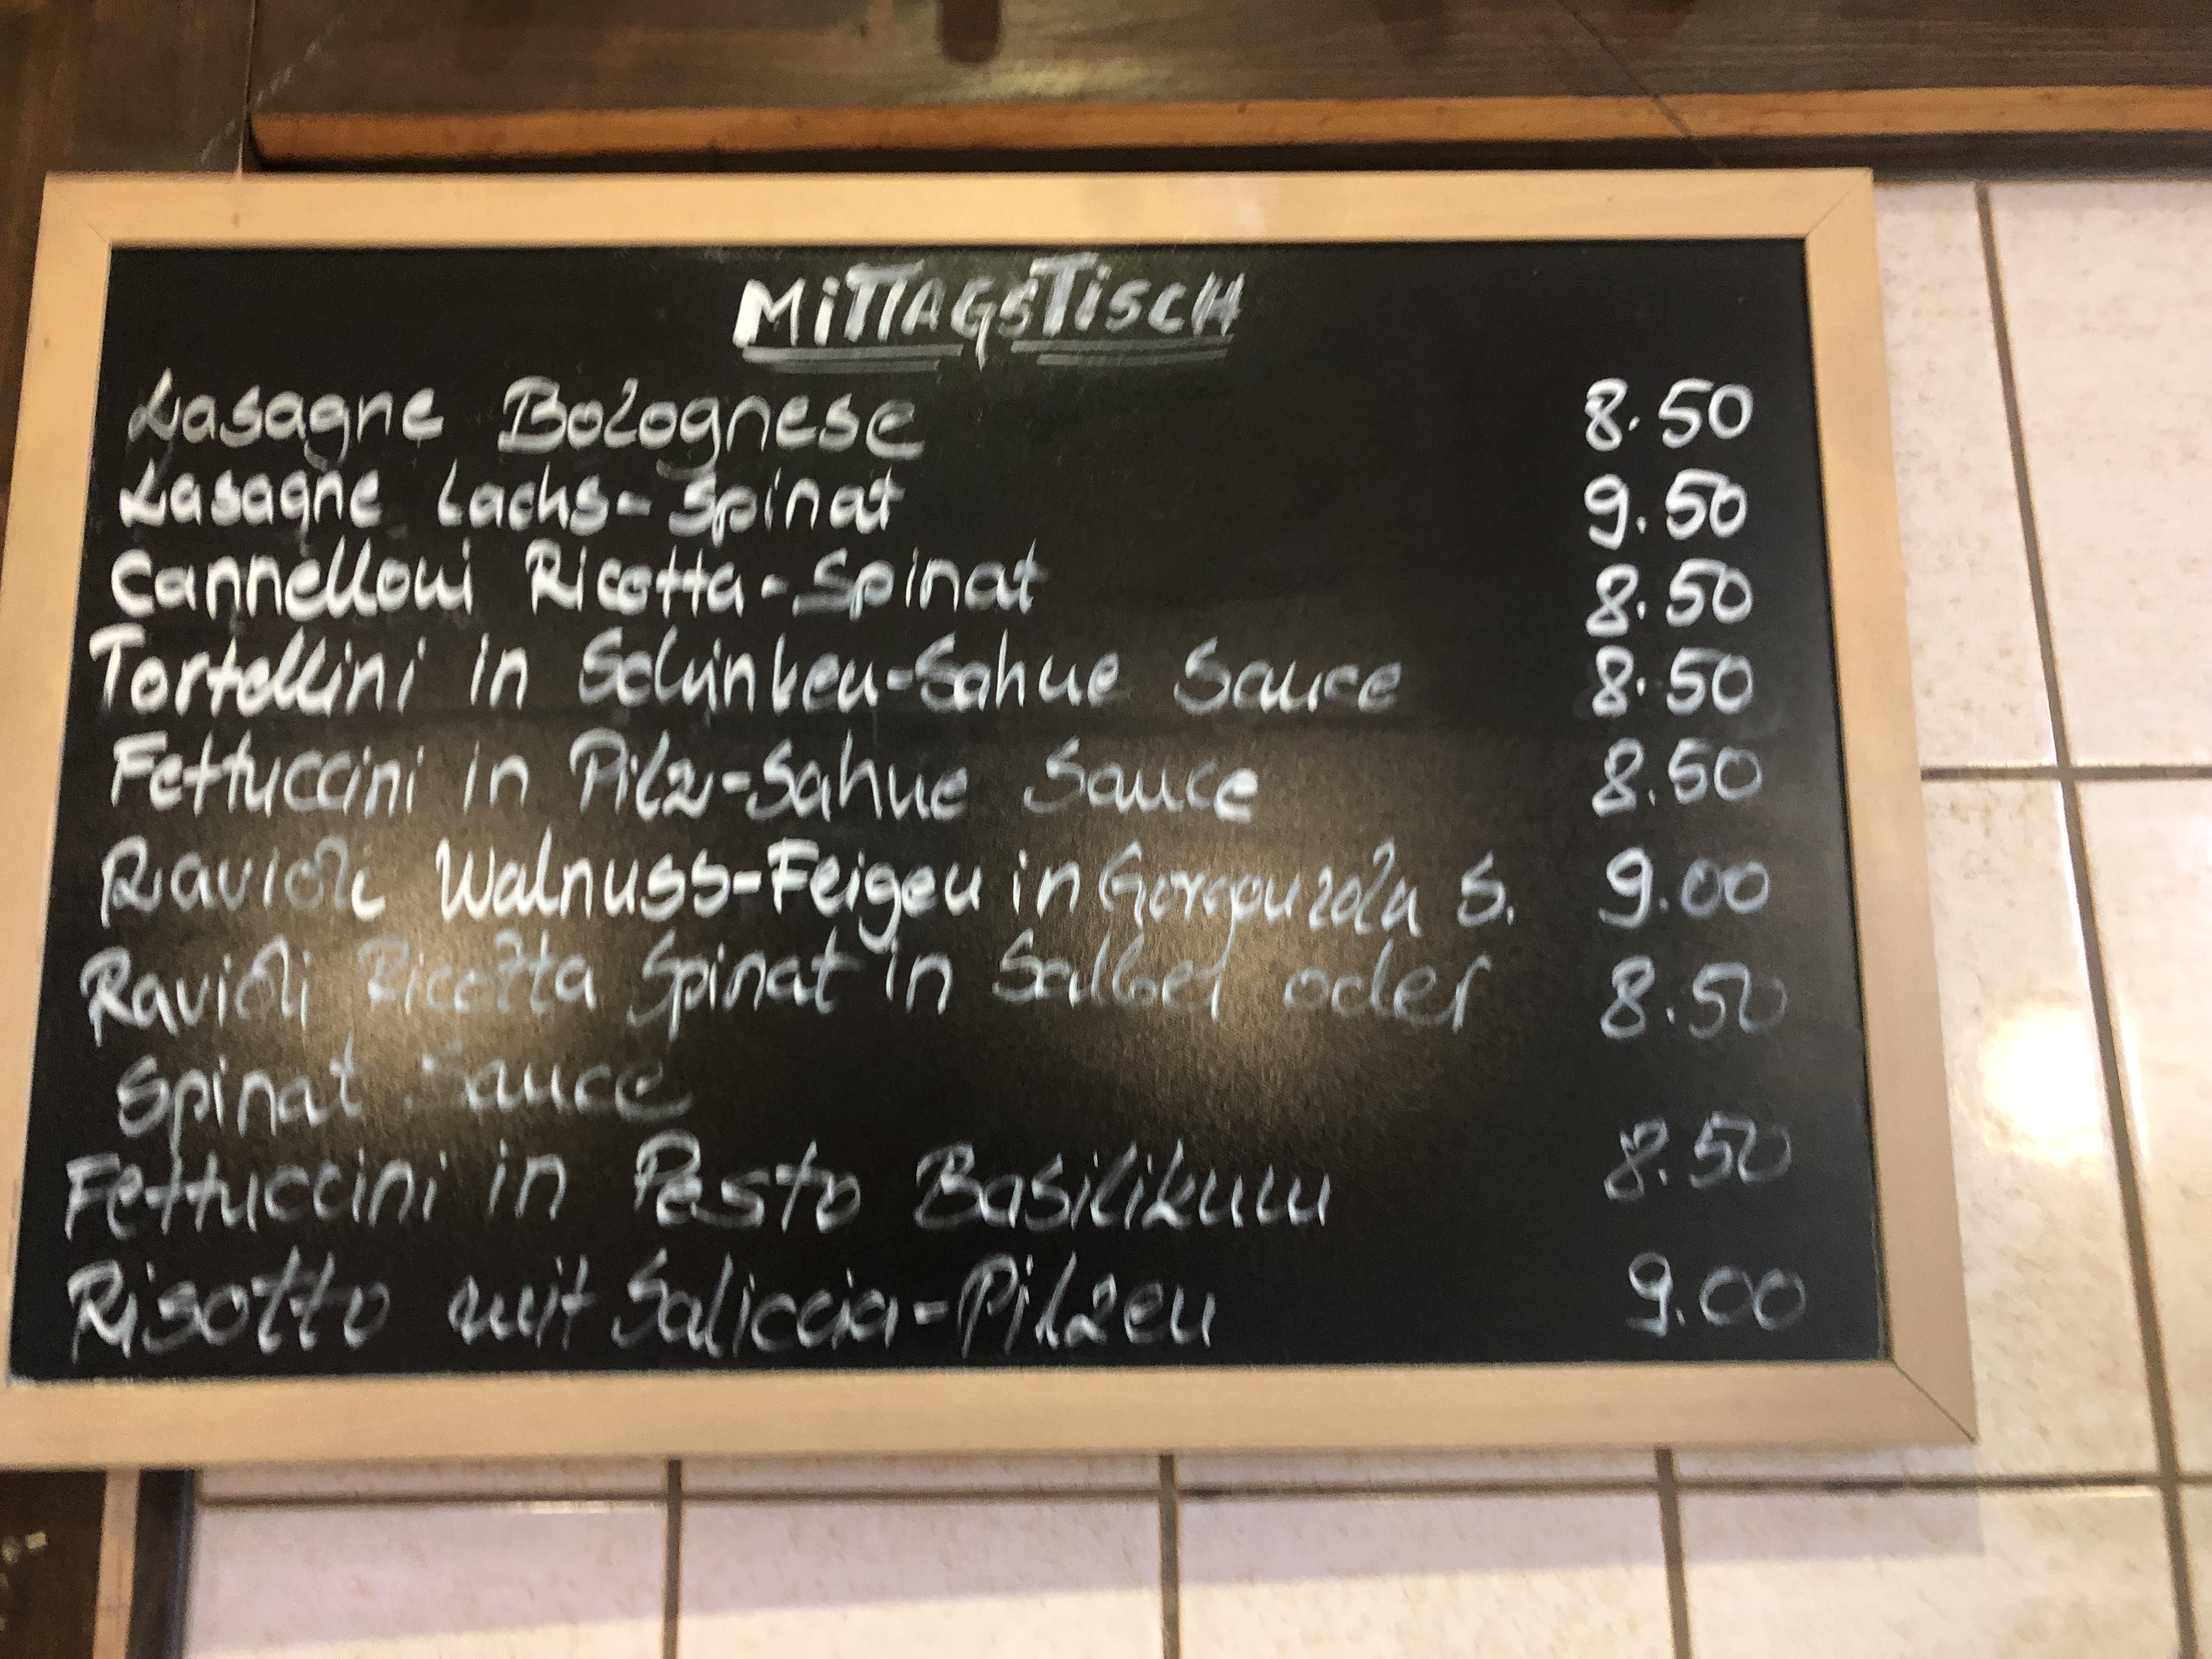 MITTAGSTISCH
Lasagne Bolognese 8.50
Lasagne Lachs-Spinat 9.50
Cannelloni Ricotta-Spinat 8.50
Tortellini in Schinken-Sahne Sauce 8.50
Fettuccini in Pilz-Sahne Sauce 8.50
Ravioli Walnuss-Feigen in Gorgonzola S. 9.00
Ravioli Ricotta Spinat in Salbei oder 8.50
Spinat Sauce
Fettuccini in Pesto Basilikum 8.50
Risotto mit Saliccia-Pilzen 9.00